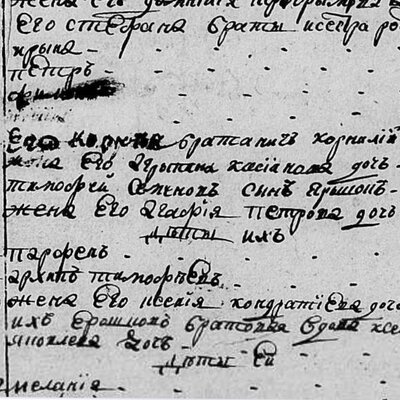 жена его
его стефана братъ и сестра
ирина
петръ
его братаничъ корнилій
жена его агрипина касіанова дочь
тимофей семеновъ синъ ярошовъ
жена его агафія петрова дочь
дѣти ихъ
парфенъ
архипъ тимофѣевъ
жена его ксенія кондратіева дочь
ихъ ерашовъ братовка вдова
яковлева дочь
дѣти ей
меланія